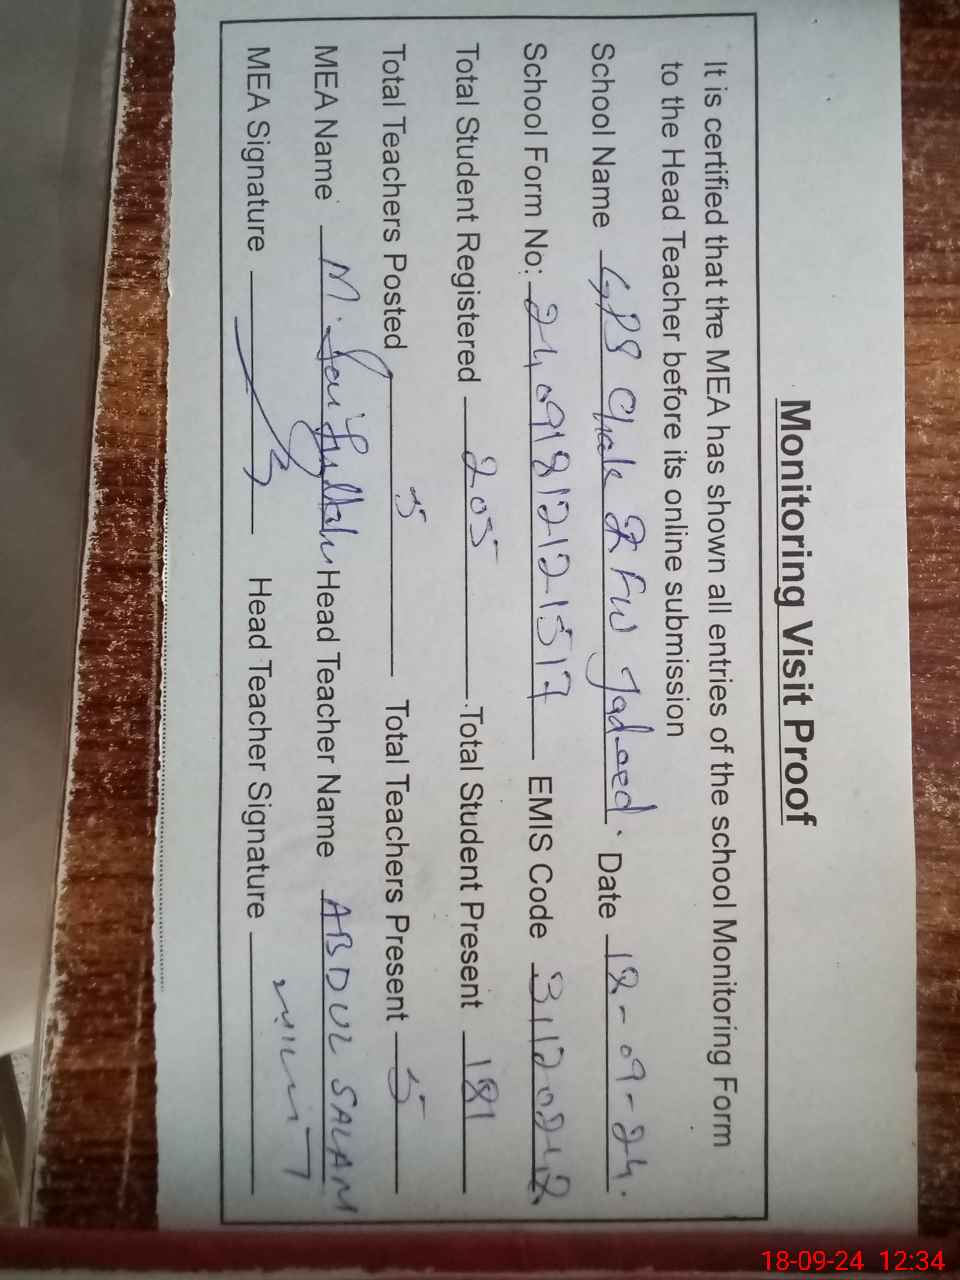 Monitoring Visit Proof
It is certified that the MEA has shown all entries of the school Monitoring Form
to the Head Teacher before its online submission
School Name GPS Chak 2 FW Jadeed. Date 18-09-24.
School Form No: EMIS Code
Total Student Registered 205 Total Student Present 181
Total Teachers Posted 5 Total Teachers Present 5
MEA Name M. Head Teacher Name ABDUL SALAM
MEA Signature Head Teacher Signature
18-09-24 12:34